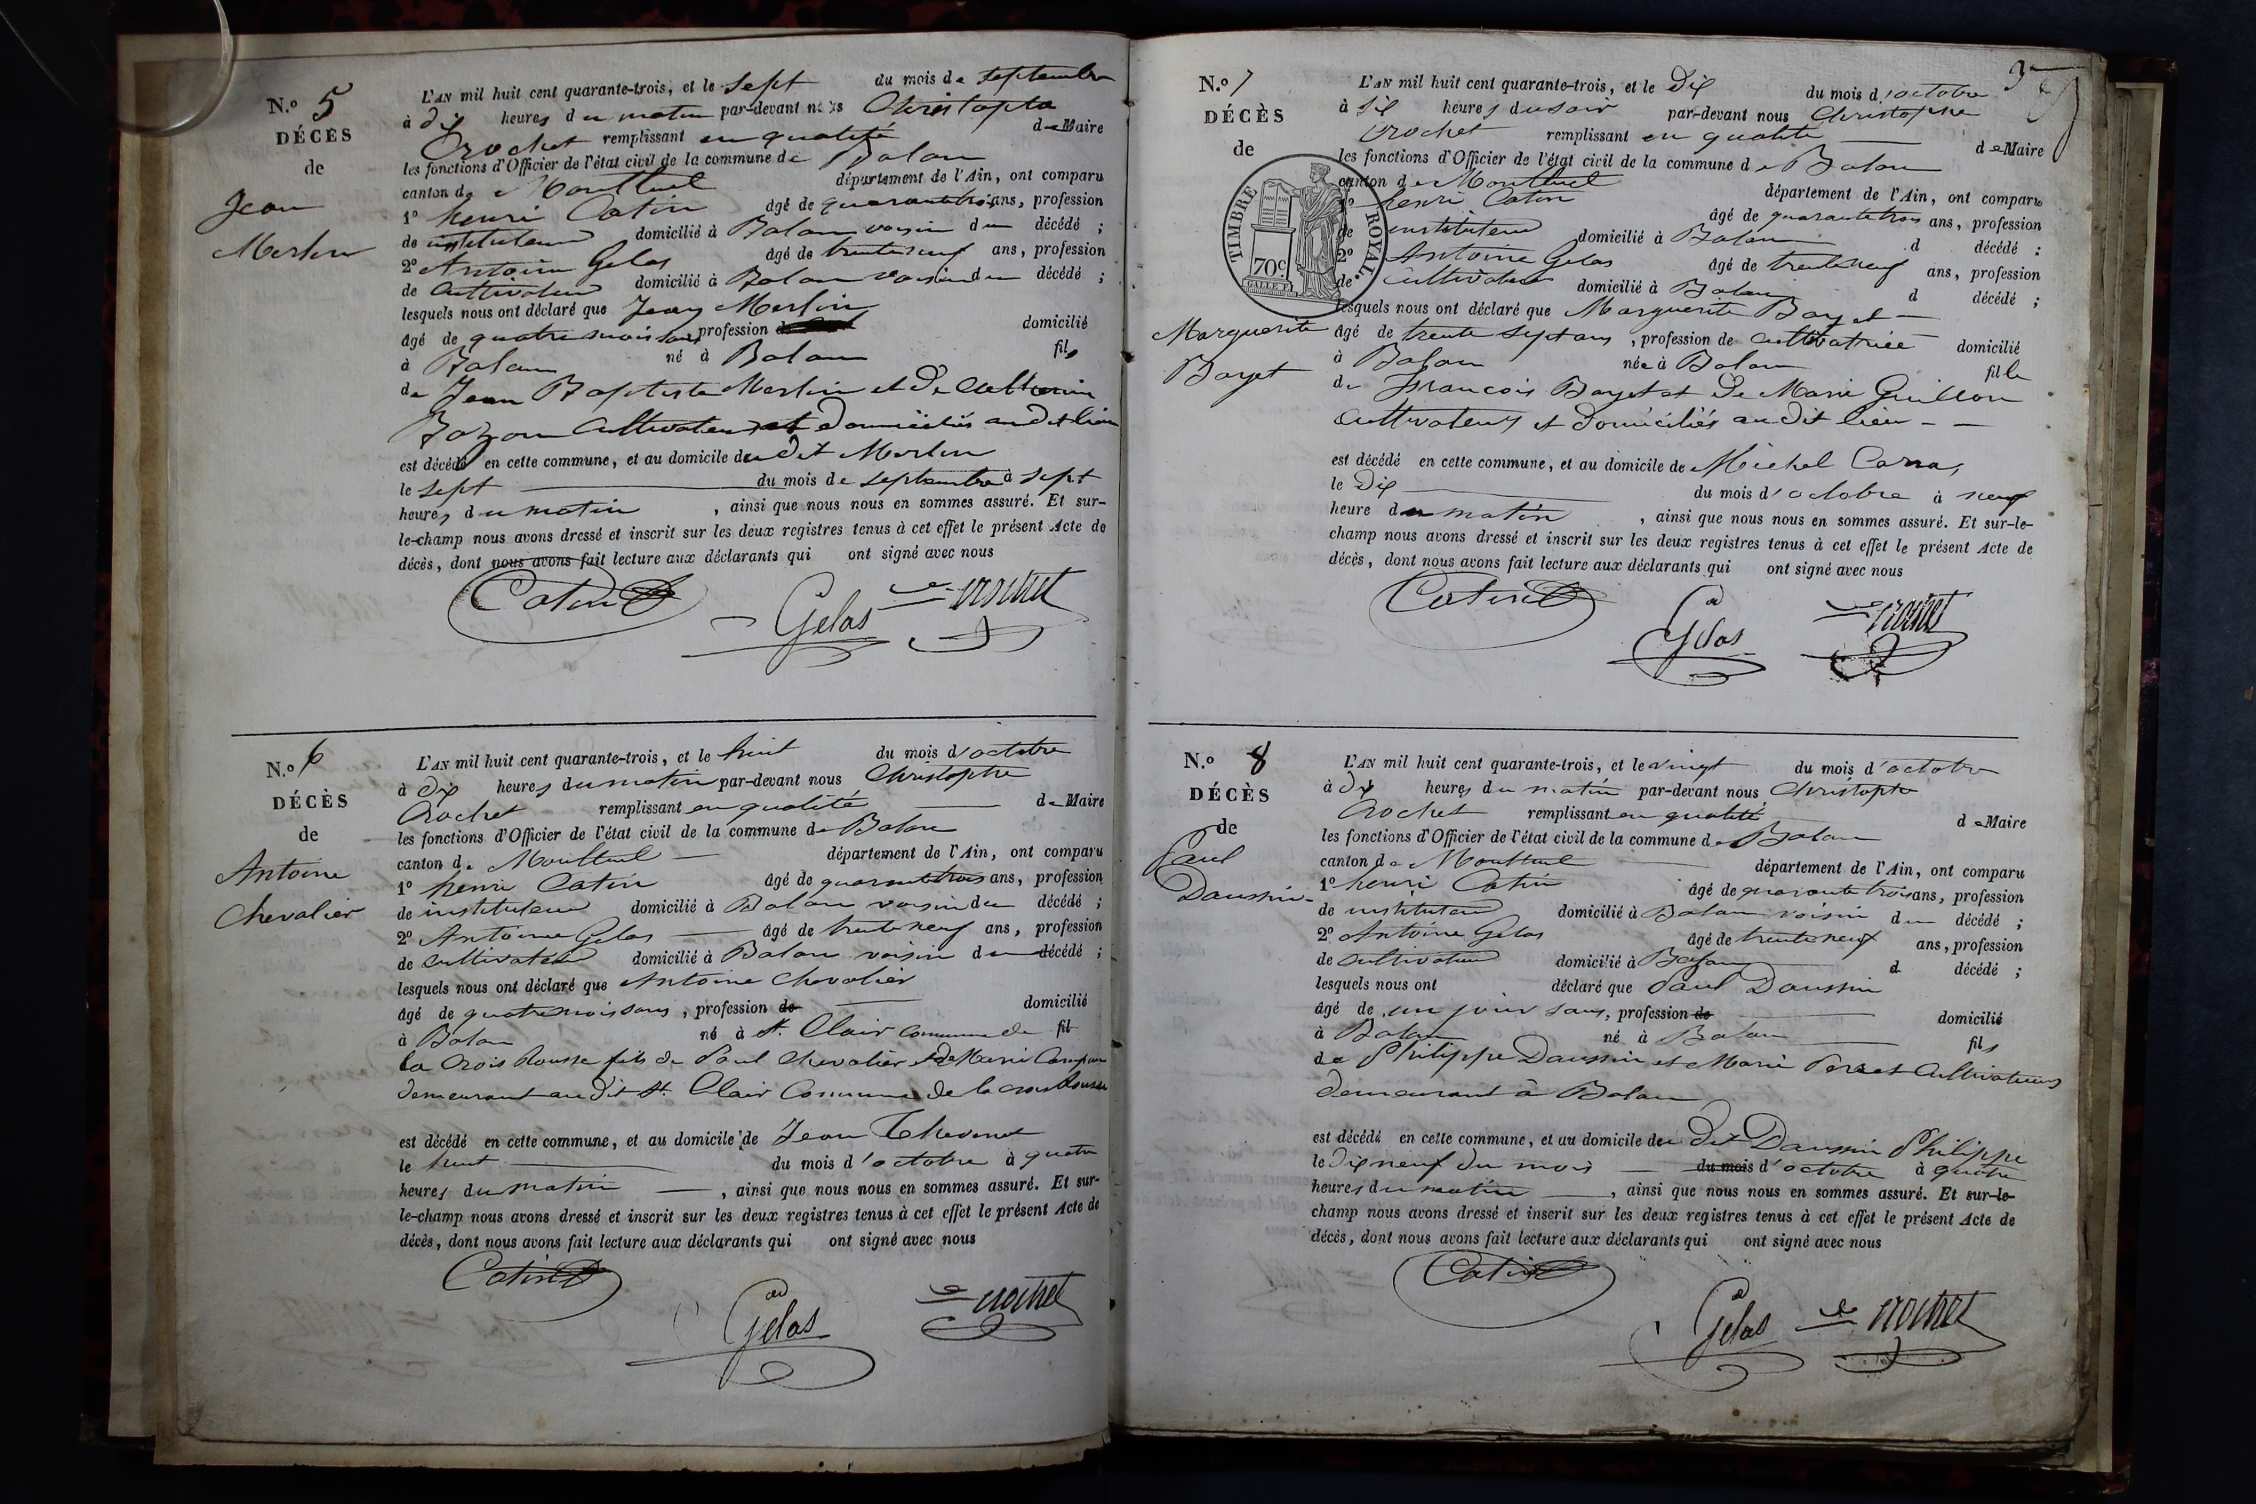 N.o 5
DÉCÈS
de
Jean
Merlin
L'AN mil huit cent quarante-trois, et le sept du mois de septembre
à dix heures du matin par-devant nous Christophe
Crochet remplissant en qualité de Maire
les fonctions d'Officier de l'état civil de la commune de Balan
canton de Montluel département de l'Ain, ont comparu
1o henri Catin âgé de quarante trois ans, profession
de instituteur domicilié à Balan voisin du décédé ;
2o Antoine Gelas âgé de trente neuf ans, profession
de Cultivateur domicilié à Balan voisin du décédé ;
lesquels nous ont déclaré que Jean Merlin
âgé de quatre mois sans profession de domicilié
à Balan né à Balan fils
de Jean Baptiste Merlin et de Catherine
Cultivateurs et domiciliés au dit lieu
est décédé en cette commune, et au domicile du dit Merlin
le sept du mois de septembre à sept
heures du matin, ainsi que nous nous en sommes assuré. Et sur-
le-champ nous avons dressé et inscrit sur les deux registres tenus à cet effet le présent Acte de
décès, dont nous avons fait lecture aux déclarants qui ont signé avec nous
Catin Gelas Crochet
N.o 6
DÉCÈS
de
Antoine
Chevalier
L'AN mil huit cent quarante-trois, et le huit du mois d'octobre
à dix heures du matin par-devant nous Christophe
Crochet remplissant en qualité de Maire
les fonctions d'Officier de l'état civil de la commune de Balan
canton de Montluel département de l'Ain, ont comparu
1o henri Catin âgé de quarante trois ans, profession
de instituteur domicilié à Balan voisin du décédé ;
2o Antoine Gelas âgé de trente neuf ans, profession
de Cultivateur domicilié à Balan voisin du décédé ;
lesquels nous ont déclaré que Antoine Chevalier
âgé de quatre mois sans, profession de domicilié
à Balan né à St. Clair Commune de fil
la Croix Rousse fils de Paul Chevalier et de Marie
demeurant au dit St. Clair Commune de la croix Rousse
est décédé en cette commune, et au domicile de Jean Thevenet
le huit du mois d'octobre à quatre
heures du matin, ainsi que nous nous en sommes assuré. Et sur-
le-champ nous avons dressé et inscrit sur les deux registres tenus à cet effet le présent Acte de
décès, dont nous avons fait lecture aux déclarants qui ont signé avec nous
Catin Gelas Crochet
37
N.o 7
DÉCÈS
de
TIMBRE ROYAL.
70c
Marguerite
Bayet
L'AN mil huit cent quarante-trois, et le Dix du mois d'octobre
à six heures du soir par-devant nous Christophe
Crochet remplissant en qualité de Maire
les fonctions d'Officier de l'état civil de la commune de Balan
canton de Montluel département de l'Ain, ont comparu
1o henri Catin âgé de quarante trois ans, profession
de instituteur domicilié à Balan d décédé ;
2o Antoine Gelas âgé de trente neuf ans, profession
de Cultivateur domicilié à Balan d décédé ;
lesquels nous ont déclaré que Marguerite Bayet
âgé de trente sept ans, profession de cultivatrice domicilié
à Balan née à Balan fille
de Francois Bayet et de Marie Guillon
Cultivateurs et domiciliés au dit lieu
est décédé en cette commune, et au domicile de Michel Carra,
le Dix du mois d'octobre à neuf
heure du matin, ainsi que nous nous en sommes assuré. Et sur-le-
champ nous avons dressé et inscrit sur les deux registres tenus à cet effet le présent Acte de
décès, dont nous avons fait lecture aux déclarants qui ont signé avec nous
Catin Gelas Crochet
N.o 8
DÉCÈS
de
Paul
Daussin
L'AN mil huit cent quarante-trois, et le vingt du mois d'octobre
à dix heures du matin par-devant nous Christophe
Crochet remplissant en qualité de Maire
les fonctions d'Officier de l'état civil de la commune de Balan
canton de Montluel département de l'Ain, ont comparu
1o henri Catin âgé de quarante trois ans, profession
de instituteur domicilié à Balan voisin du décédé ;
2o Antoine Gelas âgé de trente neuf ans, profession
de Cultivateur domicilié à Balan d décédé ;
lesquels nous ont déclaré que Paul Daussin
âgé de un jour sans, profession de domicilié
à Balan né à Balan fils
de Philippe Daussin et Marie Perret Cultivateurs
demeurant à Balan
est décédé en cette commune, et au domicile du dit Daussin Philippe
le dix neuf du mois du mois d'octobre à quatre
heures du matin, ainsi que nous nous en sommes assuré. Et sur-le-
champ nous avons dressé et inscrit sur les deux registres tenus à cet effet le présent Acte de
décès, dont nous avons fait lecture aux déclarants qui ont signé avec nous
Catin Gelas Crochet